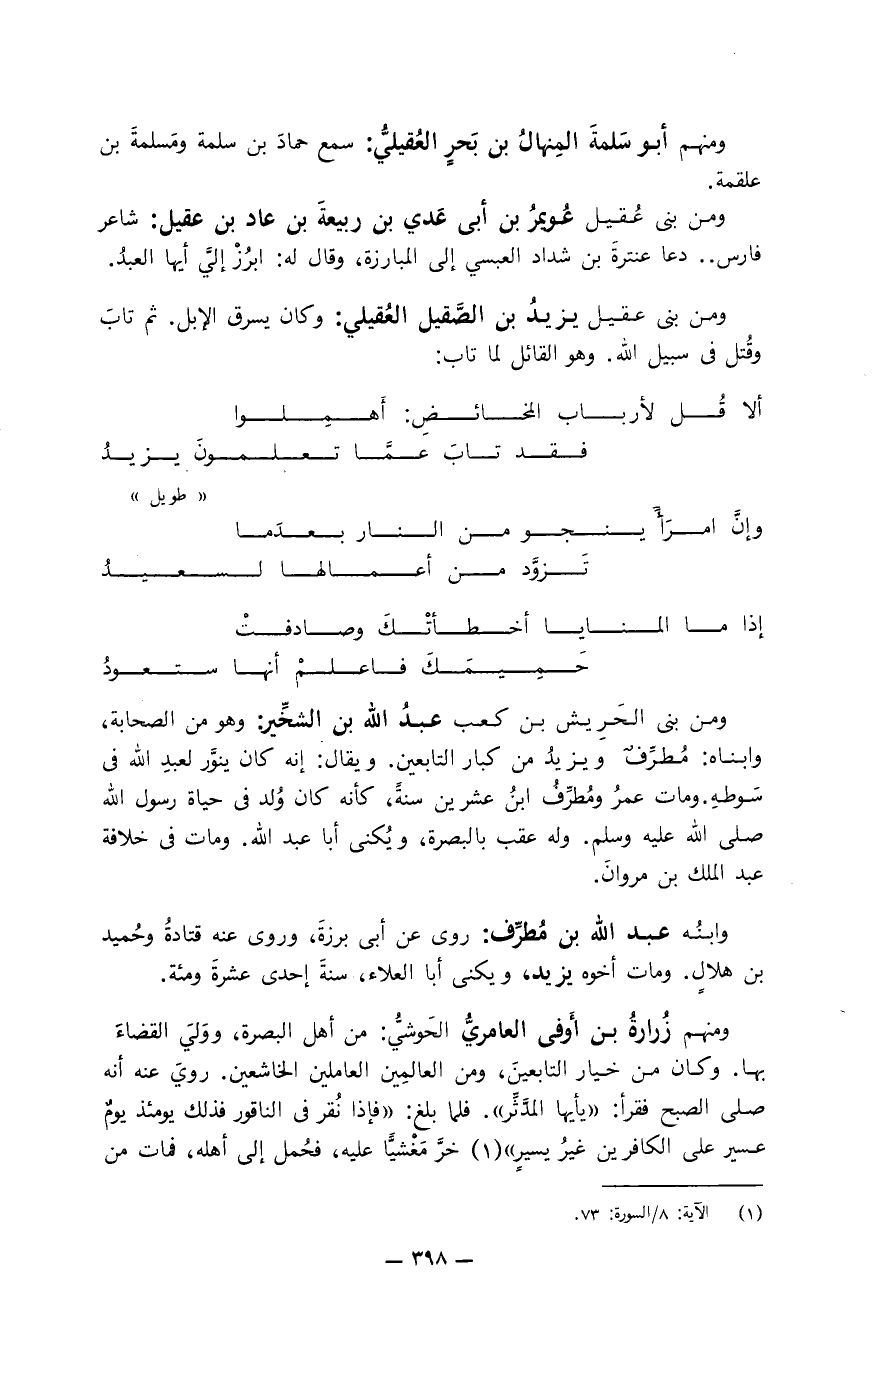 ومنهم أبو سَلمةَ المِنهالُ بن بَحرٍ العُقيليُّ: سمع حمادَ بن سلمة ومَسلمةَ بن
علقمة.
ومن بنى عُقيل عُويمرُ بن أبى عَدي بن ربيعةَ بن عاد بن عقيل: شاعر
فارس.. دعا عنترةَ بن شداد العبسي إلى المبارزة، وقال له: ابرُزْ إليَّ أيها العبدُ.
ومن بنى عقيل يزيدُ بن الصَّقيل العُقيلي: وكان يسرق الإبل. ثم تابَ
وقُتل فى سبيل الله. وهو القائل لما تاب:
ألا قُل لأرباب المخائض: أَهمِلوا
فقد تابَ عمَّا تعلمونَ يزيدُ
« طويل »
وإنَّ امرَأً ينجو من النار بعدَما
تَزوَّد من أعمالها لسعيدُ
إذا ما المنايا أخطأتْكَ وصادفتْ
حَمِيمَكَ فاعلمْ أنها ستعودُ
ومن بنى الحَرِيش بن كعب عبدُ الله بن الشخِّير: وهو من الصحابة،
وابناه: مُطرِّفٌ ويزيدُ من كبار التابعين. ويقال: إنه كان ينوَّر لعبدِ الله فى
سَوطهِ. ومات عمرُ ومُطرِّفُ ابنُ عشرين سنةً، كأنه كان وُلد فى حياة رسول الله
صلى الله عليه وسلم. وله عقب بالبصرة، ويُكنى أبا عبد الله. ومات فى خلافة
عبد الملك بن مروانَ.
وابنُه عبد الله بن مُطرِّف: روى عن أبى برزةَ، وروى عنه قتادةُ وحُميد
بن هلالٍ. ومات أخوه يزيد، ويكنى أبا العلاء، سنةَ إحدى عشرةَ ومئة.
ومنهم زُرارةُ بن أَوفى العامريُّ الحَوشيُّ: من أهل البصرة، ووَليَ القضاءَ
بها. وكان من خيار التابعينَ، ومن العالمِين العاملين الخاشعين. رويَ عنه أنه
صلى الصبح فقرأ: «يأيها المدَّثِّر». فلما بلغ: «فإذا نُقر فى الناقور فذلك يومئذ يومٌ
عسير على الكافرين غيرُ يسيرٍ»(١) خرَّ مَغْشيًّا عليه، فحُمل إلى أهله، فمات من
(١) الآية: ٨/السورة: ٧٣.
— ٣٩٨ —